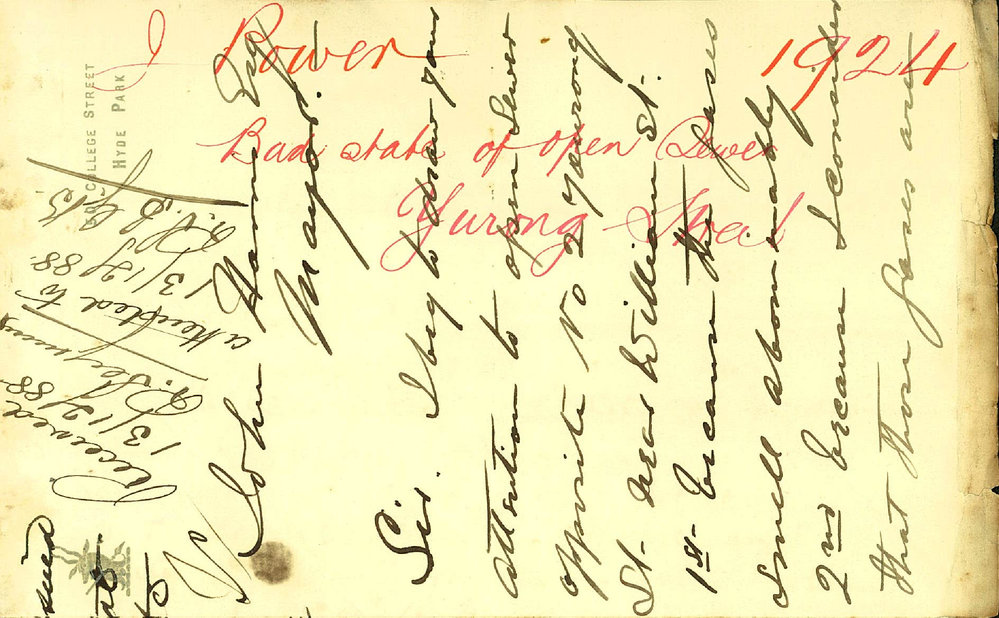 J Power 1924
Bad state of open Sewer
Yurong Street
COLLEGE STREET
HYDE PARK
John Harris Esq
Mayor.
Sir. I beg to draw your
attention to open Sewer
opposite No 2 Yourong
St. near William St.
1st because the gases
smell abominably
2nd because I consider
that those gases are
Received
13/12/88.
R. Seymour
attended to
13/12/88.